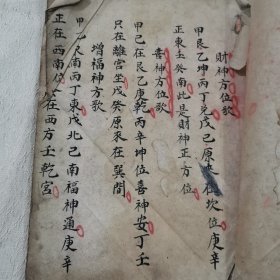 財神方位歌
甲艮乙坤丙丁兌戊己原來在坎位庚辛
正東壬癸南此是財神正方位
喜神方位歌
甲己在艮乙庚乾丙辛坤位喜神安丁壬
只在離宮坐戊癸原來在巽間
增福神方歌
甲乙南丙丁東戊北己南福神通庚辛
正在西南位 在西方壬乾宮